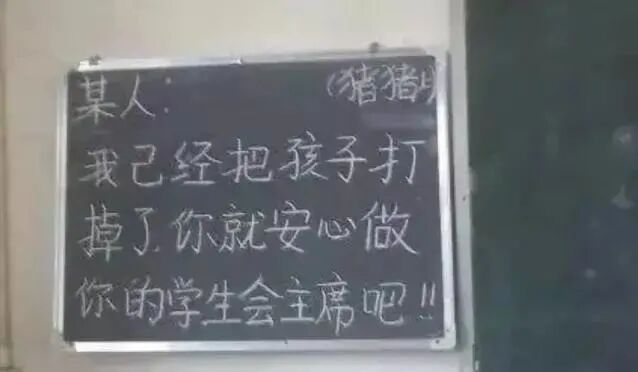 某人： （猪猪
我己经把孩子打
掉了你就安心做
你的学生会主席吧!!